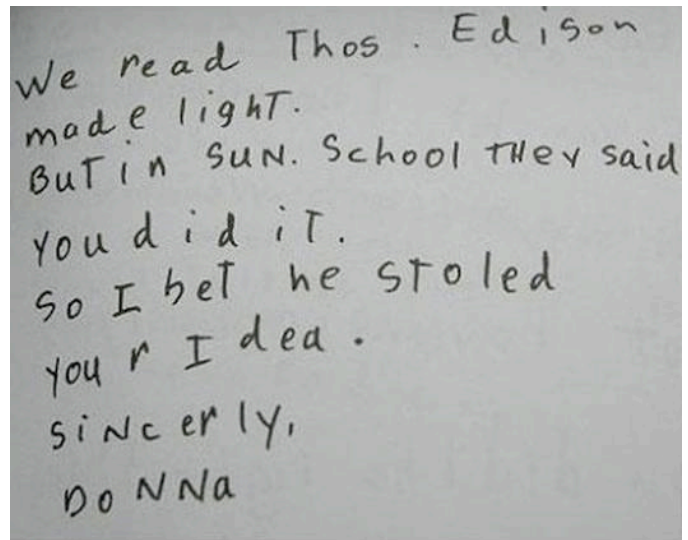 We read Thos. Edison
made light.
But in SUN. School THey said
you did iT.
So I beT he sToled
your Idea.
SiNcerly,
DoNNa